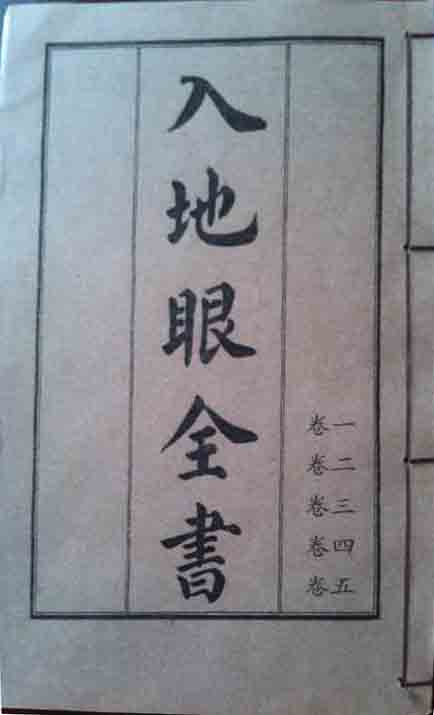 入地眼全書
卷一
卷二
卷三
卷四
卷五